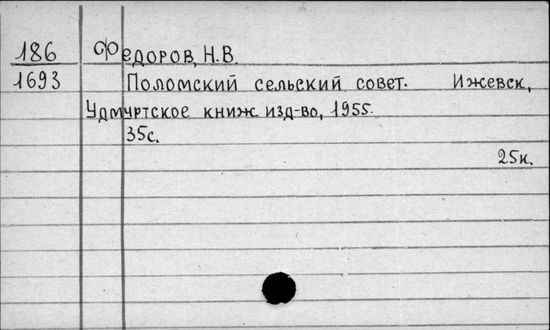 186 Федоров, Н.В.
1693 Поломский сельский совет. Ижевск,
Удмуртское книж. изд-во, 1955.
35с.
25к.